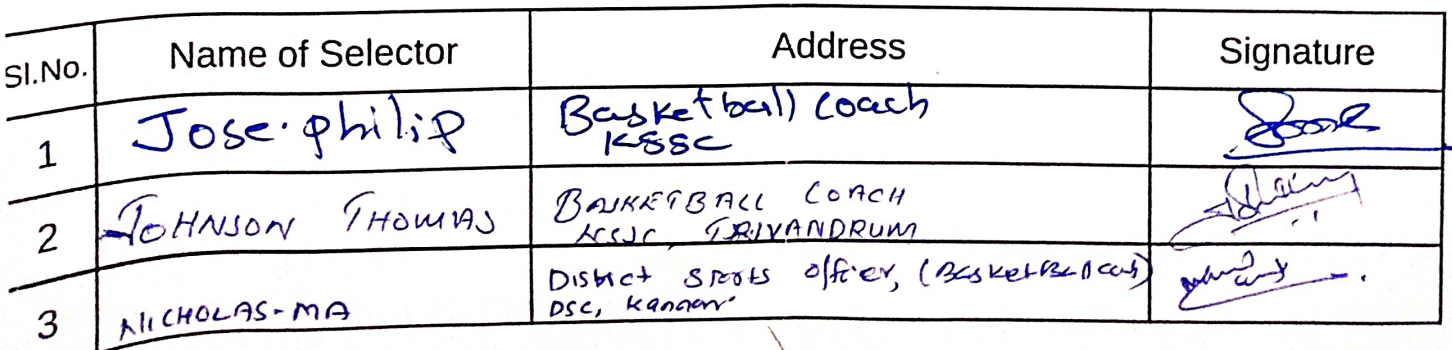 Sl.No. Name of Selector Address Signature
1 Jose. philip Basketball coach
KSSC
2 JOHNSON THOMAS BASKETBALL COACH
KSSC, TRIVANDRUM
3 NICHOLAS-MA District Sports officer, (Basketball
DSC, Kannur